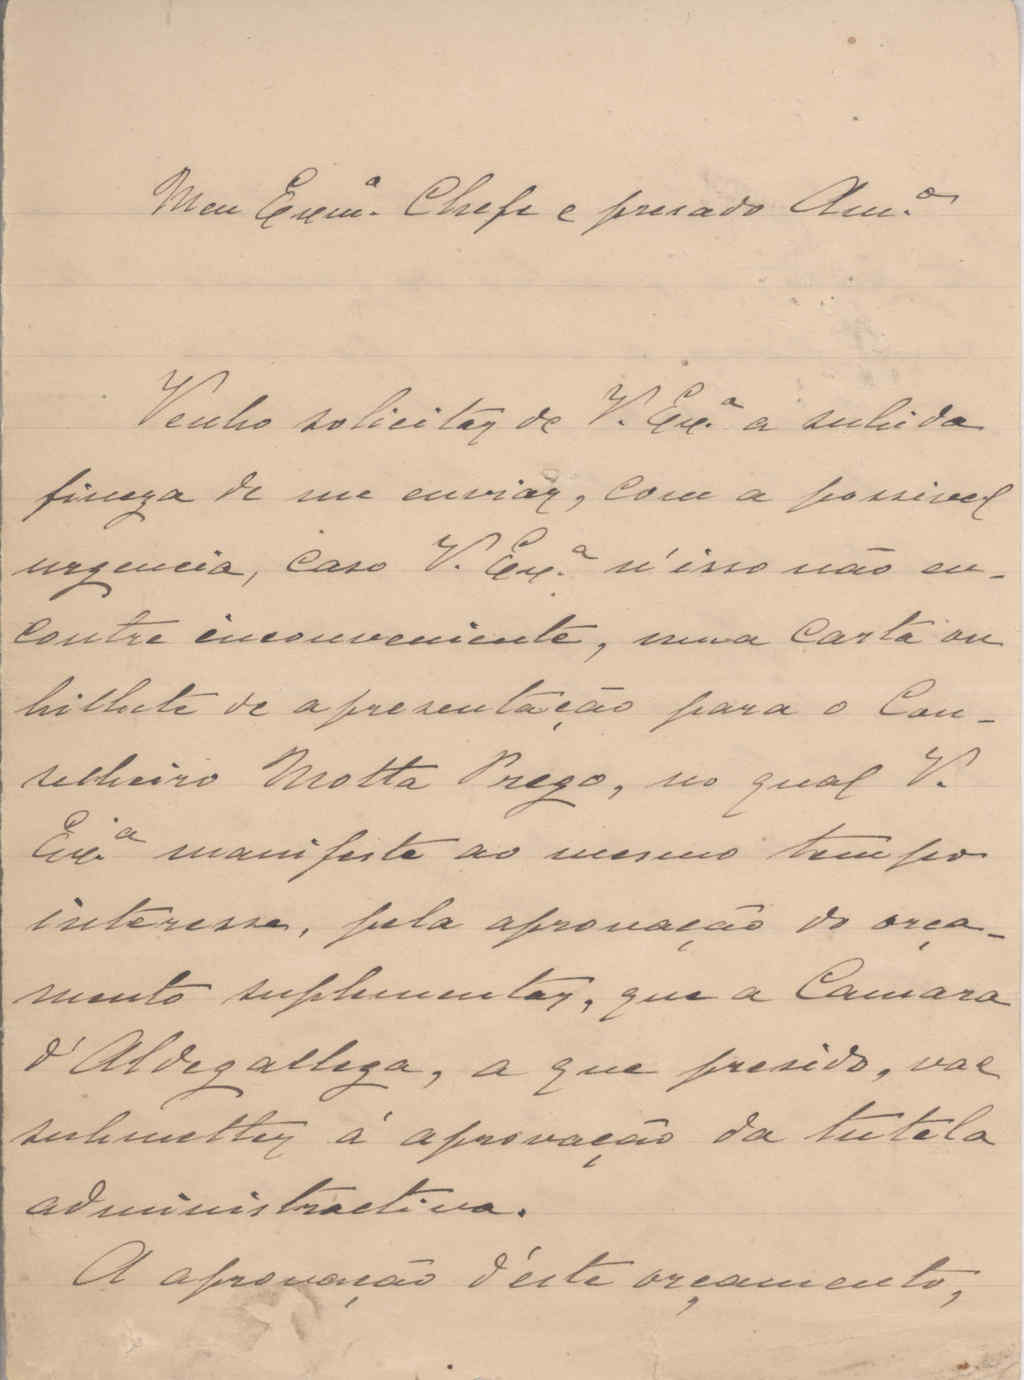 Meu Exmº. Chefe e presado Amº.
Venho solicitar de V. Exª. a subida
fineza de me enviar, com a possivel
urgencia, caso V. Exª. n'isso não en-
contre inconveniente, uma carta ou
bilhete de apresentação para o Con-
selheiro Motta Prego, no qual V.
Exª. manifeste ao mesmo tempo
interesse, pela aprovação do orça-
mento suplementar, que a Camara
d'Aldegallega, a que presido, vae
submetter á aprovação da tutela
administractiva.
A aprovação d'éste orçamento,